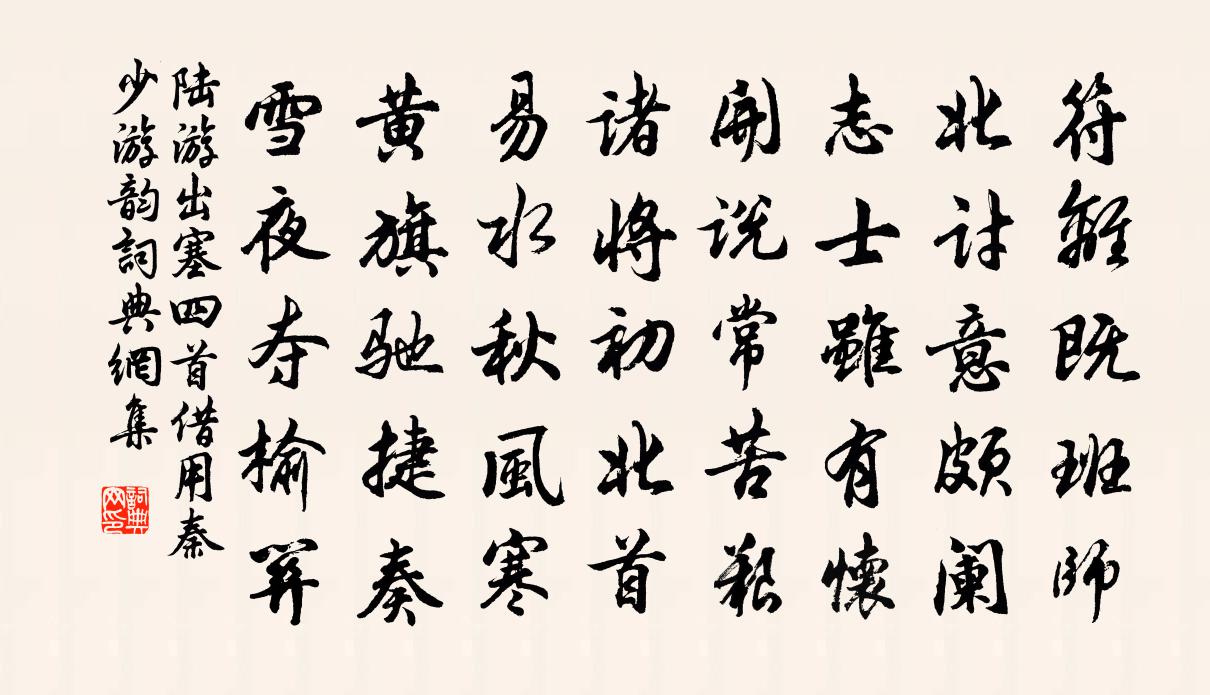 符離既班師
北討意頗闌
志士雖有懷
開説常苦艱
諸將初北首
易水秋風寒
黄旗馳捷奏
雪夜夺榆關
陸游出塞四首借用秦
少游韵詞典網集
詞典网印